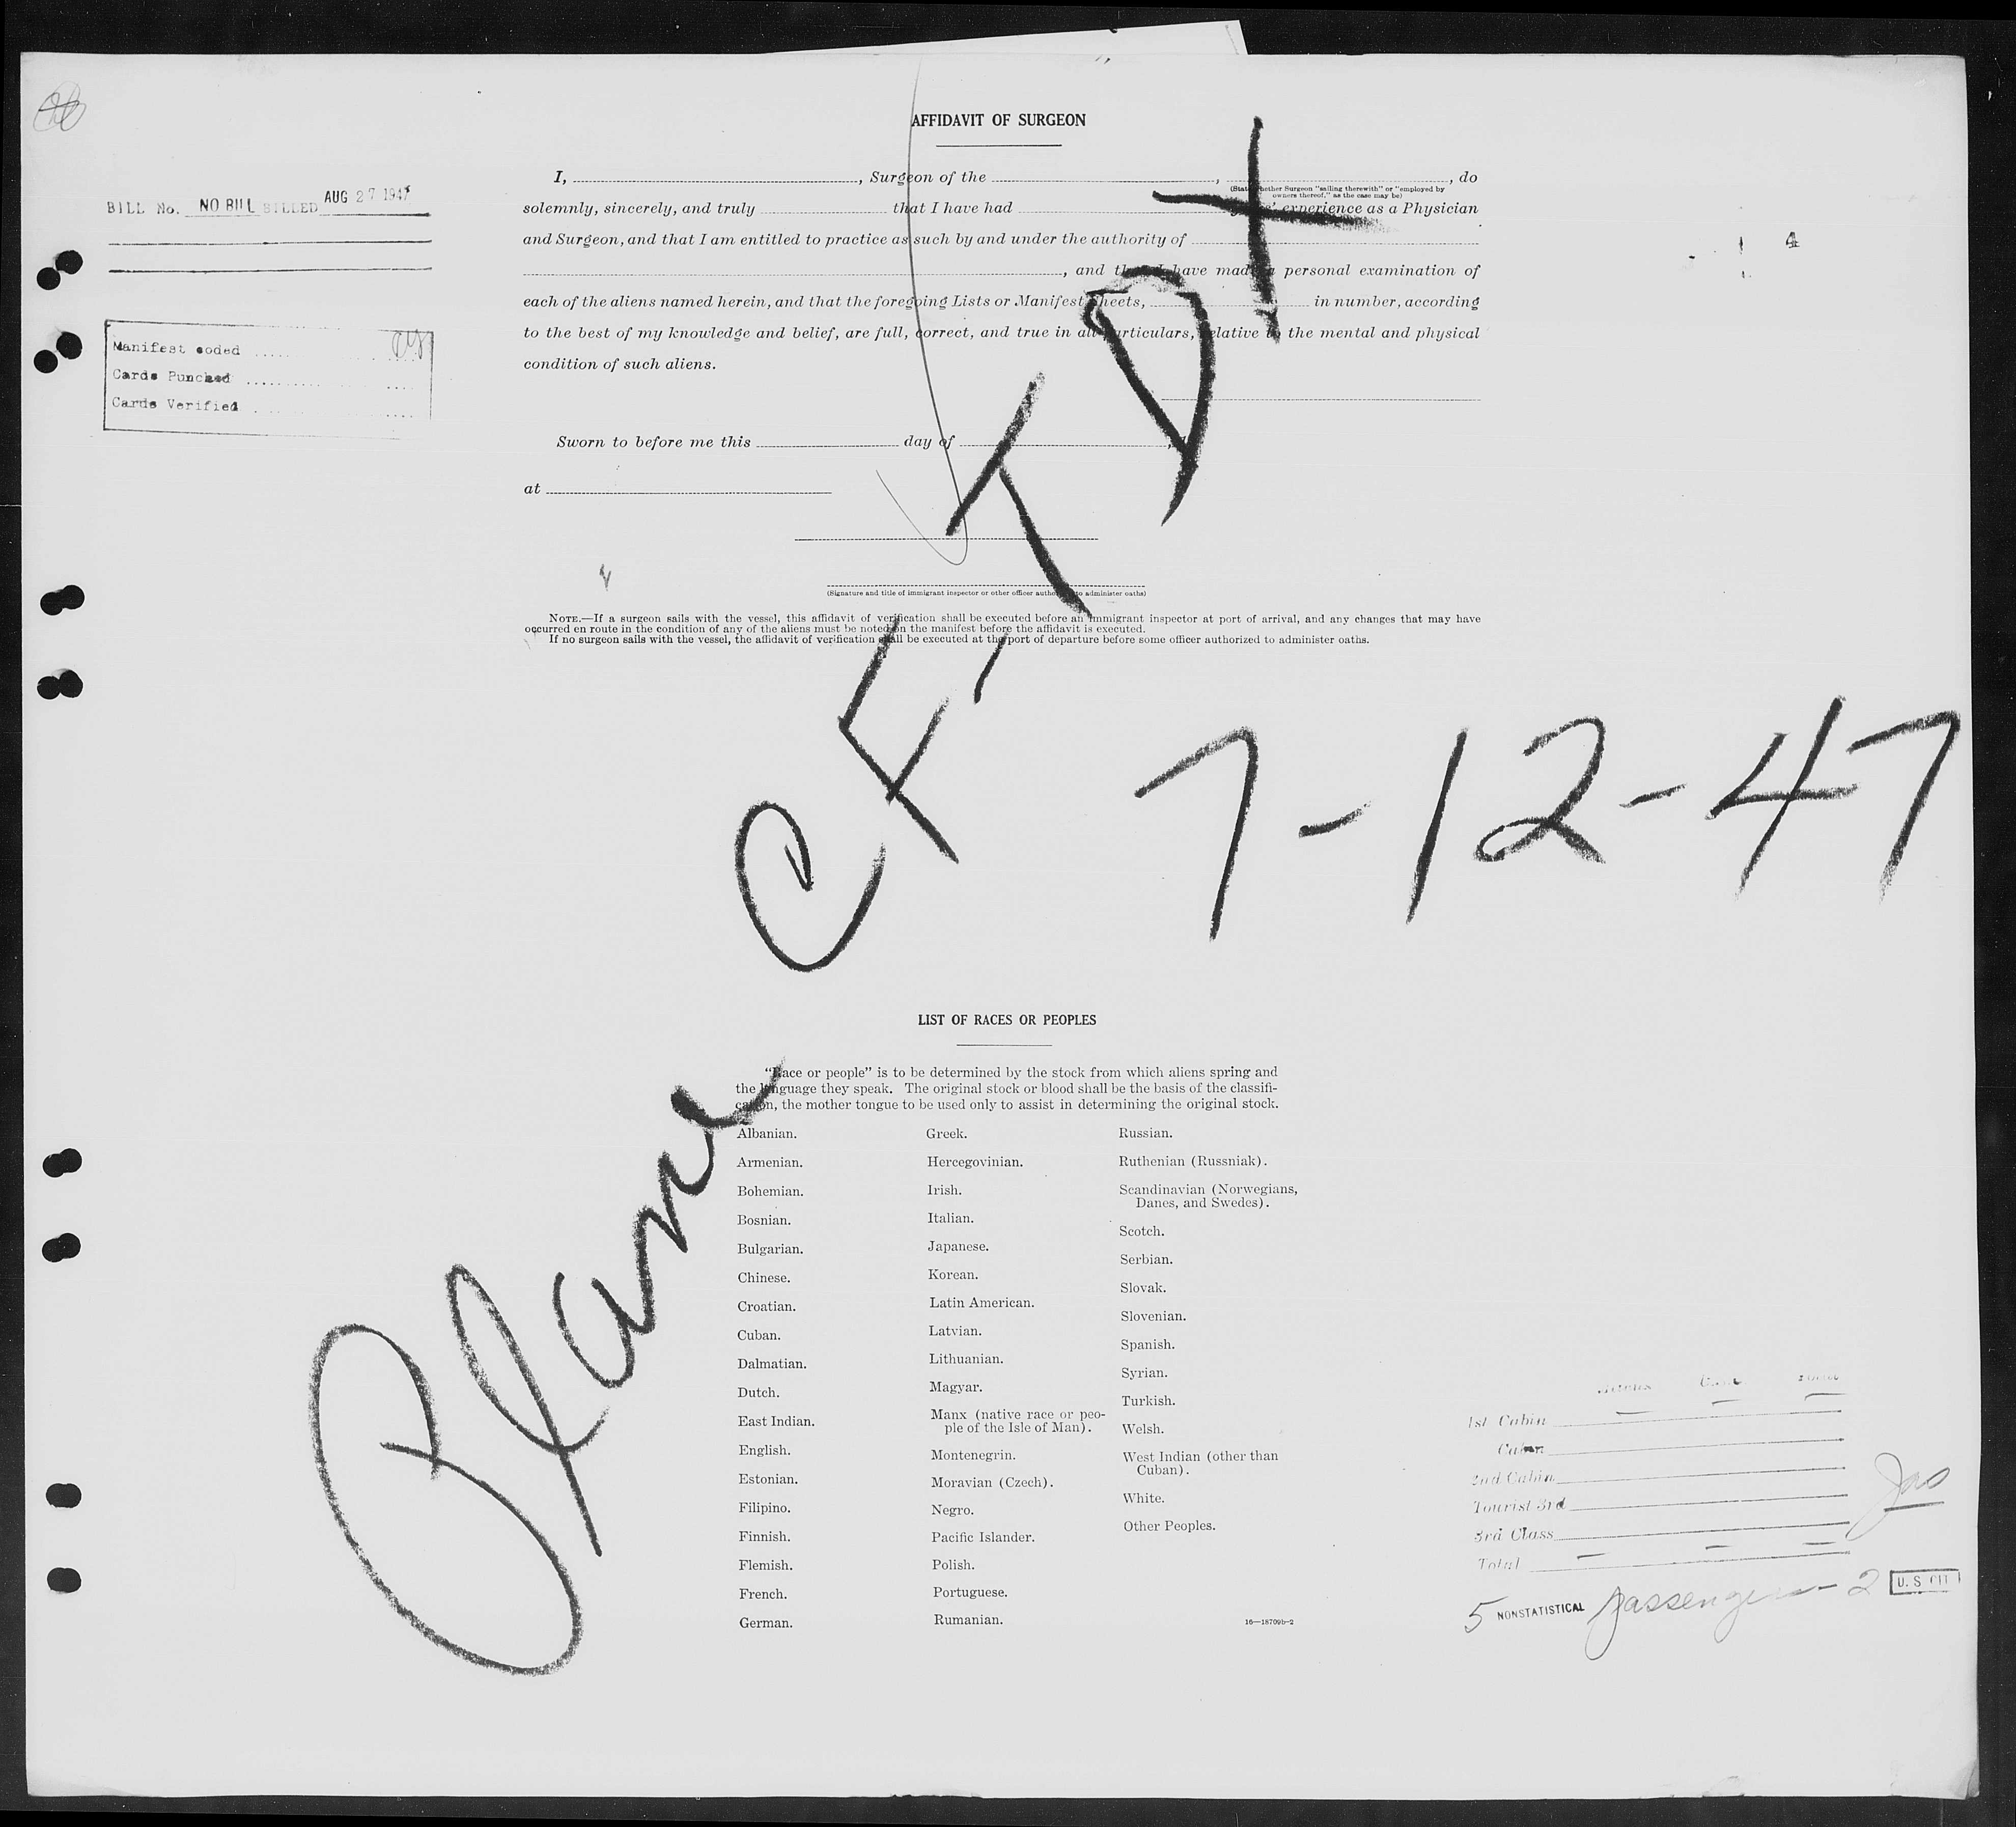 AFFIDAVIT OF SURGEON
I, , Surgeon of the , , do
(State whether Surgeon "sailing therewith" or "employed by
owners thereof," as the case may be)
solemnly, sincerely, and truly that I have had experience as a Physician
and Surgeon, and that I am entitled to practice as such by and under the authority of
, and that I have made a personal examination of
each of the aliens named herein, and that the foregoing Lists or Manifest Sheets, in number, according
to the best of my knowledge and belief, are full, correct, and true in all particulars, relative to the mental and physical
condition of such aliens.
Sworn to before me this day of ,
at
(Signature and title of immigrant inspector or other officer authorized to administer oaths)
NOTE.—If a surgeon sails with the vessel, this affidavit of verification shall be executed before an immigrant inspector at port of arrival, and any changes that may have
occurred en route in the condition of any of the aliens must be noted on the manifest before the affidavit is executed.
If no surgeon sails with the vessel, the affidavit of verification shall be executed at the port of departure before some officer authorized to administer oaths.
BILL No. NO BILL BILLED AUG 27 1947
Manifest coded
Cards Punched
Cards Verified
4
Plane CF-TDX
7-12-47
LIST OF RACES OR PEOPLES
"Race or people" is to be determined by the stock from which aliens spring and
the language they speak. The original stock or blood shall be the basis of the classifi-
cation, the mother tongue to be used only to assist in determining the original stock.
Albanian.
Armenian.
Bohemian.
Bosnian.
Bulgarian.
Chinese.
Croatian.
Cuban.
Dalmatian.
Dutch.
East Indian.
English.
Estonian.
Filipino.
Finnish.
Flemish.
French.
German.
Greek.
Hercegovinian.
Irish.
Italian.
Japanese.
Korean.
Latin American.
Latvian.
Lithuanian.
Magyar.
Manx (native race or peo-
ple of the Isle of Man).
Montenegrin.
Moravian (Czech).
Negro.
Pacific Islander.
Polish.
Portuguese.
Rumanian.
Russian.
Ruthenian (Russniak).
Scandinavian (Norwegians,
Danes, and Swedes).
Scotch.
Serbian.
Slovak.
Slovenian.
Spanish.
Syrian.
Turkish.
Welsh.
West Indian (other than
Cuban).
White.
Other Peoples.
16—18709b-2
1st Cabin
Cabin
2nd Cabin
Tourist 3rd
3rd Class
Total
5 NONSTATISTICAL passengers - 2 U. S. CIT